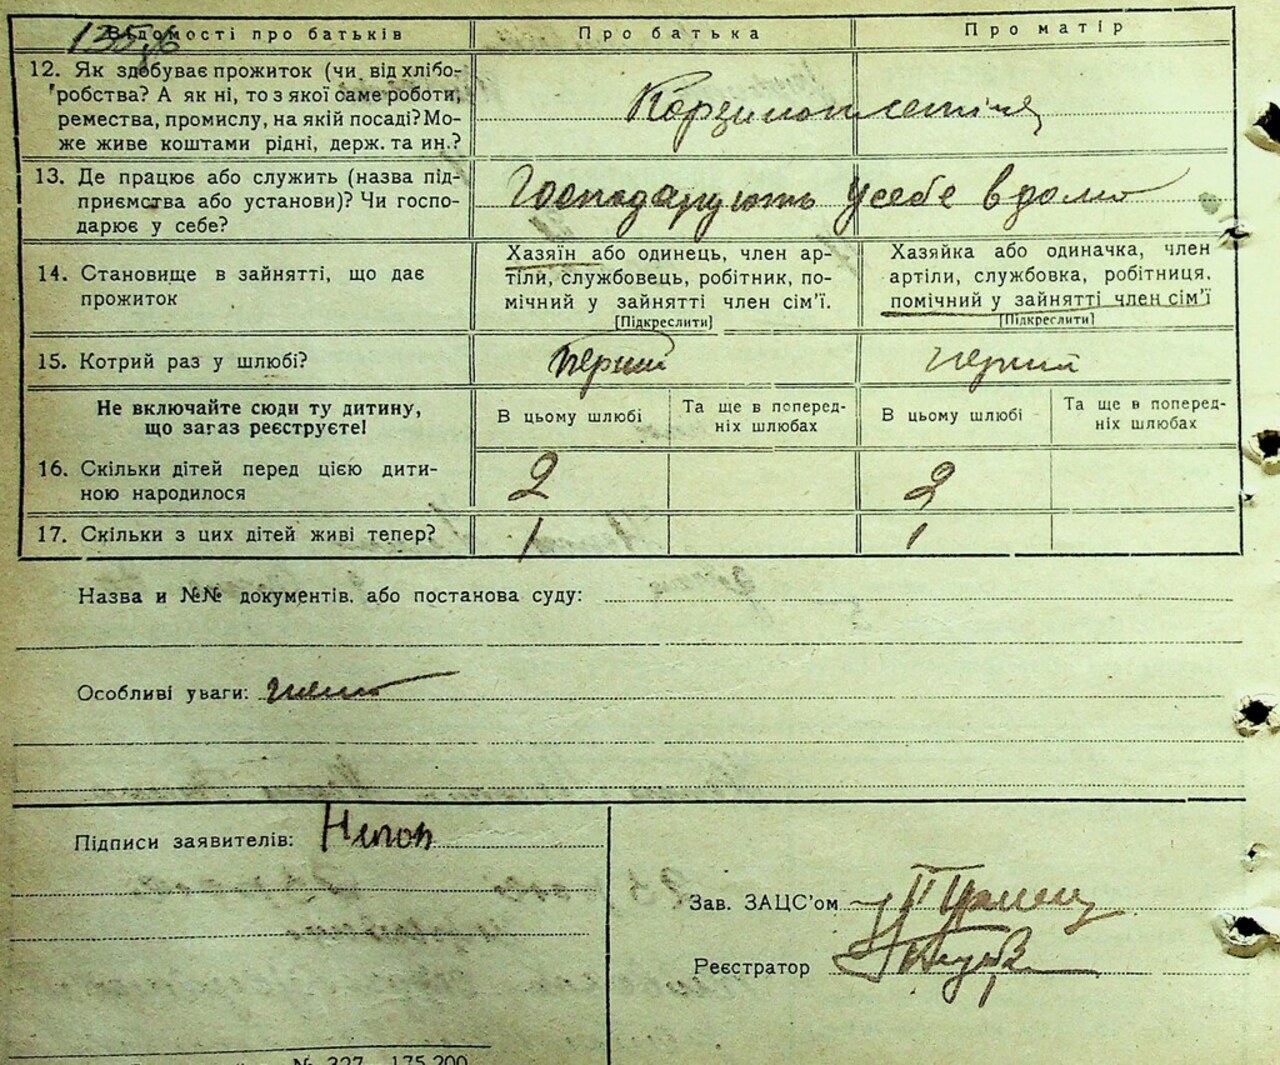 Відомості про батьків
Про батька
Про матір
12. Як здобуває прожиток (чи від хлібо-
робства? А як ні, то з якої саме роботи,
ремества, промислу, на якій посаді? Мо-
же живе коштами рідні, держ. та ин.?
13. Де працює або служить (назва під-
приємства або установи)? Чи госпо-
дарює у себе?
Господарують у себе в дома
14. Становище в зайнятті, що дає
прожиток
Хазяїн або одинець, член ар-
тіли, службовець, робітник, по-
мічний у зайнятті член сім'ї.
[Підкреслити]
Хазяйка або одиначка, член
артіли, службовка, робітниця,
помічний у зайнятті член сім'ї
[Підкреслити]
15. Котрий раз у шлюбі?
Перший
перший
Не включайте сюди ту дитину,
що загаз реєструєте!
В цьому шлюбі
Та ще в поперед-
ніх шлюбах
В цьому шлюбі
Та ще в поперед-
ніх шлюбах
16. Скільки дітей перед цією дити-
ною народилося
2
2
17. Скільки з цих дітей живі тепер?
1
1
Назва и №№ документів. або постанова суду:
Особливі уваги:
Підписи заявителів:
Зав. ЗАЦС'ом
Реєстратор
№ 327 175.200